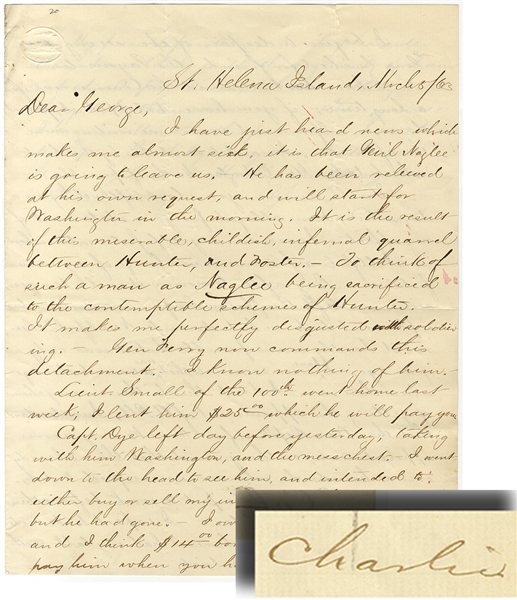 20
St. Helena Island, March 5/63
Dear George,
I have just heard news which
makes me almost sick, it is that Genl Naglee
is going to leave us. He has been relieved
at his own request, and will start for
Washington in the morning. It is the result
of this miserable, childish, infernal quarrel
between Hunter, and Foster. — To think of
such a man as Naglee being sacrificed
to the contemptible schemes of Hunter. —
It makes me perfectly disgusted with soldier
ing. — Gen Ferry now commands this
detachment. I know nothing of him. —
Lieut. Small of the 100th went home last
week; I lent him $25.00 which he will pay you
Capt. Dye left day before yesterday, taking
with him Washington, and the mess chest. — I went
down to the head to see him, and intended to
either buy or sell my in
but he had gone. — I ow
and I think $14.00 bo
pay him when you ha
Charlie